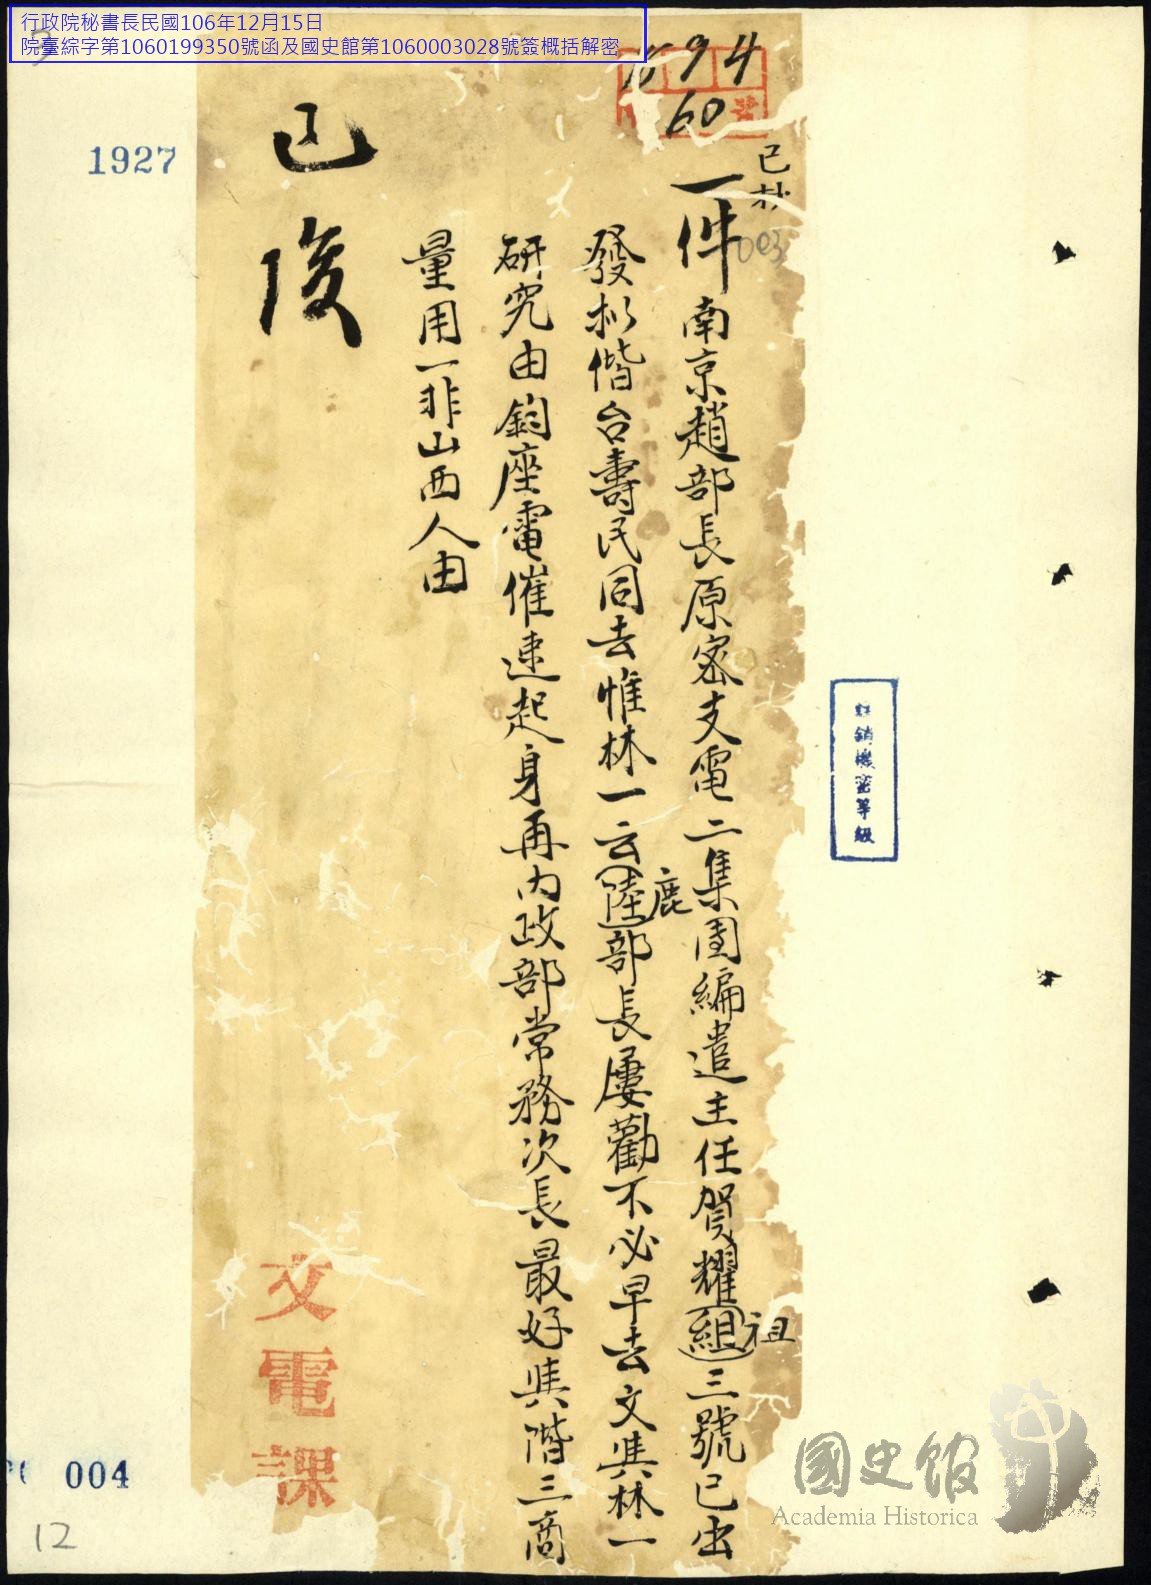 行政院秘書長民國106年12月15日
院臺綜字第1060199350號函及國史館第1060003028號簽概括解密
94
60
號
已抄
003
一件南京趙部長原密支電二集團編遣主任賀耀組三號已出
祖
發擬偕台壽民同去惟林一云陸部長屢勸不必早去文與林一
鹿
研究由鈞座電催速起身再內政部常務次長最好與階三商
量用一非山西人由
已復
文電課
1927
004
12
註銷機密等級
國史館
Academia Historica